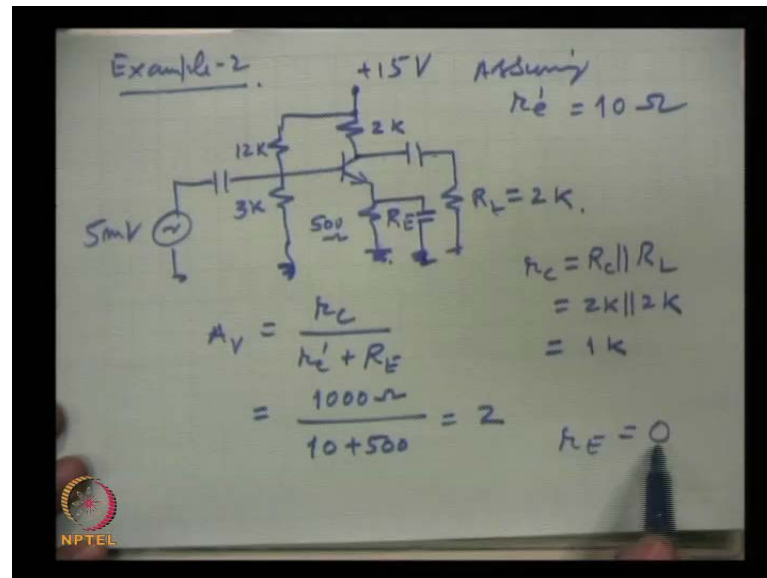 Example-2.
+15V
Assuming
re' = 10 Ω
12K
2K
3K
5mV
500
RE
RL = 2K.
rc = Rc||RL
= 2K||2K
= 1K
AV = rc / re' + RE
= 1000Ω / 10+500 = 2
rE = 0
NPTEL